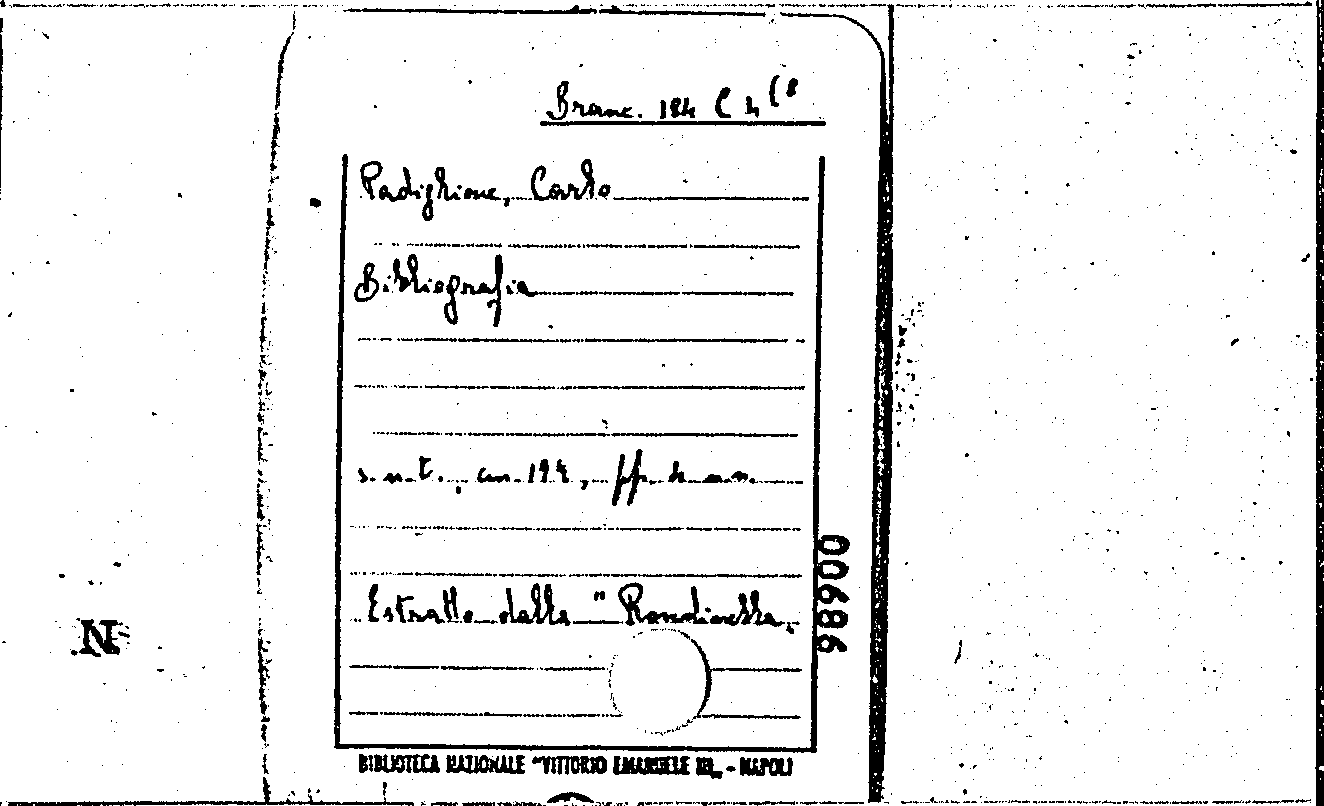 Branc. 184 C 4 (8
Padiglione, Carlo
Bibliografia
s.n.t., cm. 19 , pp. 4 nn.
Estratto dalla "Rondinella„
009986
N
BIBLIOTECA NAZIONALE "VITTORIO EMANUELE III„ - NAPOLI